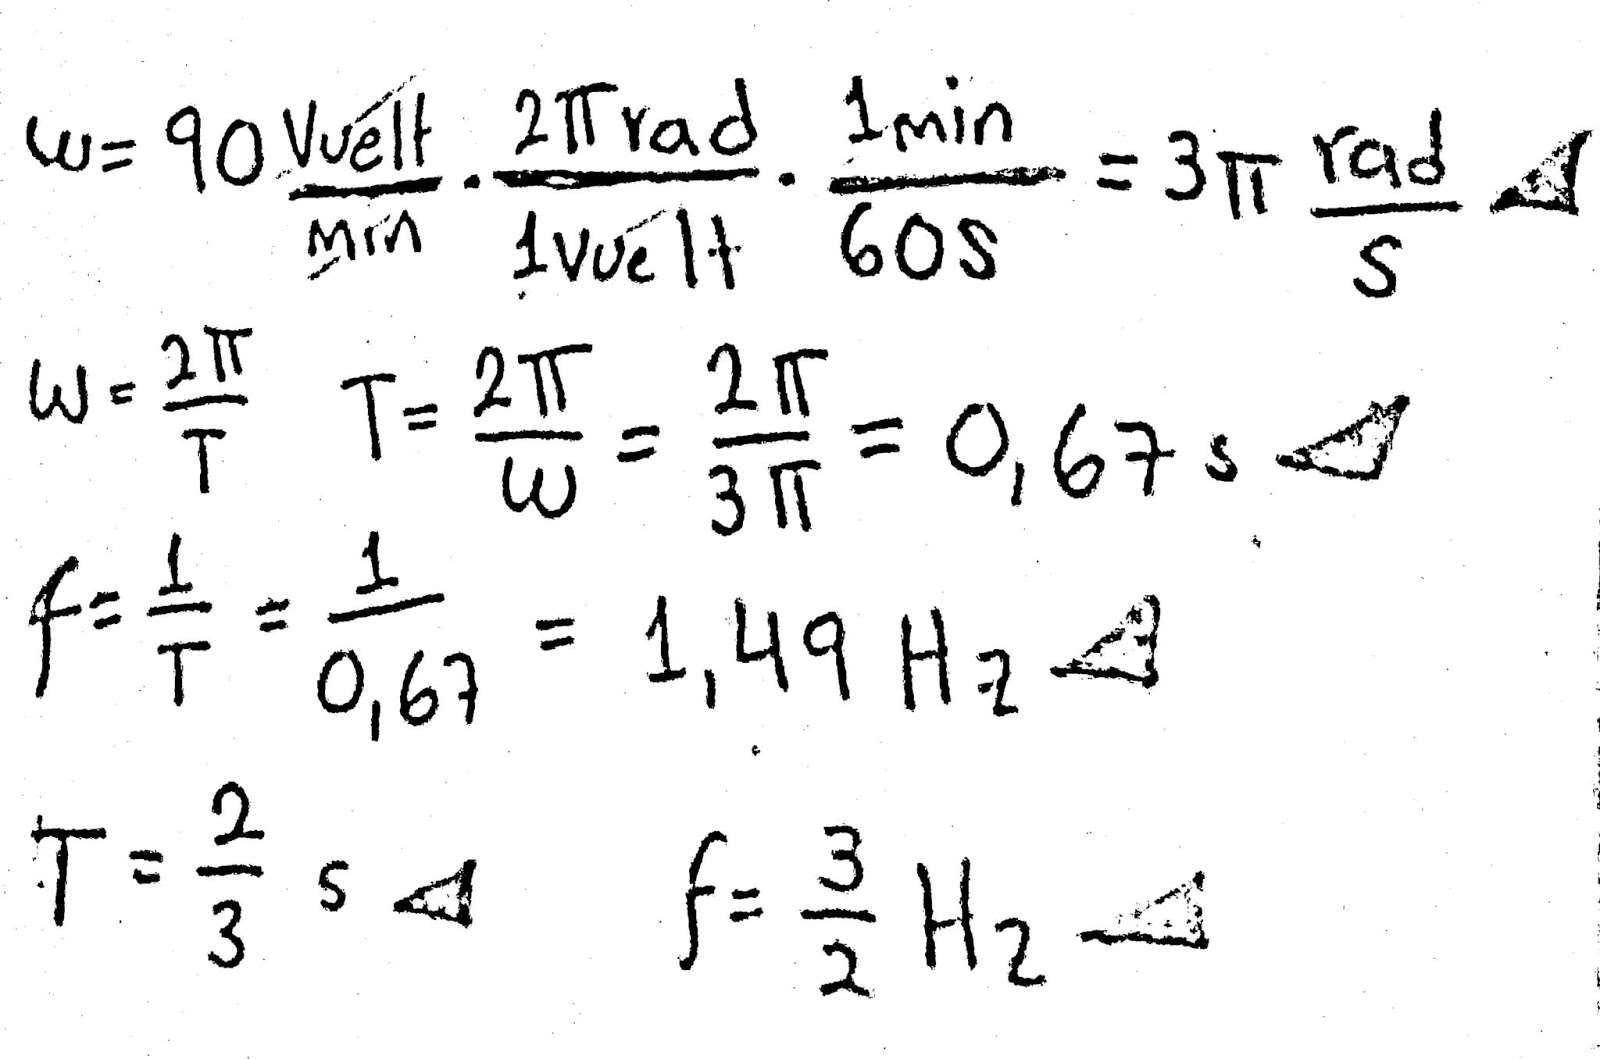 ω = 90 Vuelt/min · 2π rad/1 vuelt · 1 min/60 s = 3π rad/s
ω = 2π/T T = 2π/ω = 2π/3π = 0,67 s
f = 1/T = 1/0,67 = 1,49 Hz
T = 2/3 s f = 3/2 Hz